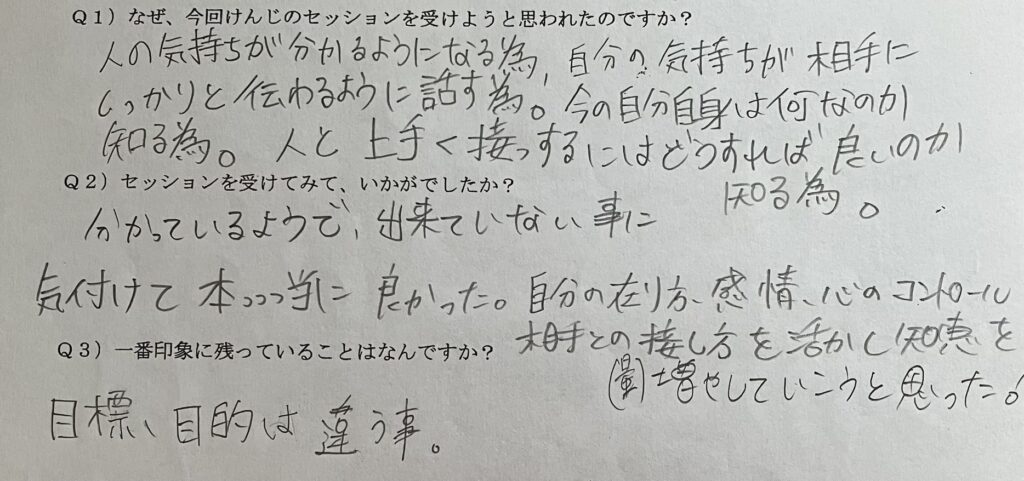 Q1）なぜ、今回けんじのセッションを受けようと思われたのですか？
人の気持ちが分かるようになる為、自分の気持ちが相手に
しっかりと伝わるように話す為。今の自分自身は何なのか
知る為。人と上手く接っするにはどうすれば良いのか
知る為。
Q2）セッションを受けてみて、いかがでしたか？
分かっているようで、出来ていない事に
気付けて本っっっ当に良かった。自分の在り方、感情、心のコントロール
相手との接し方を活かし知恵を
(量)増やしていこうと思った。
Q3）一番印象に残っていることはなんですか？
目標、目的は違う事。